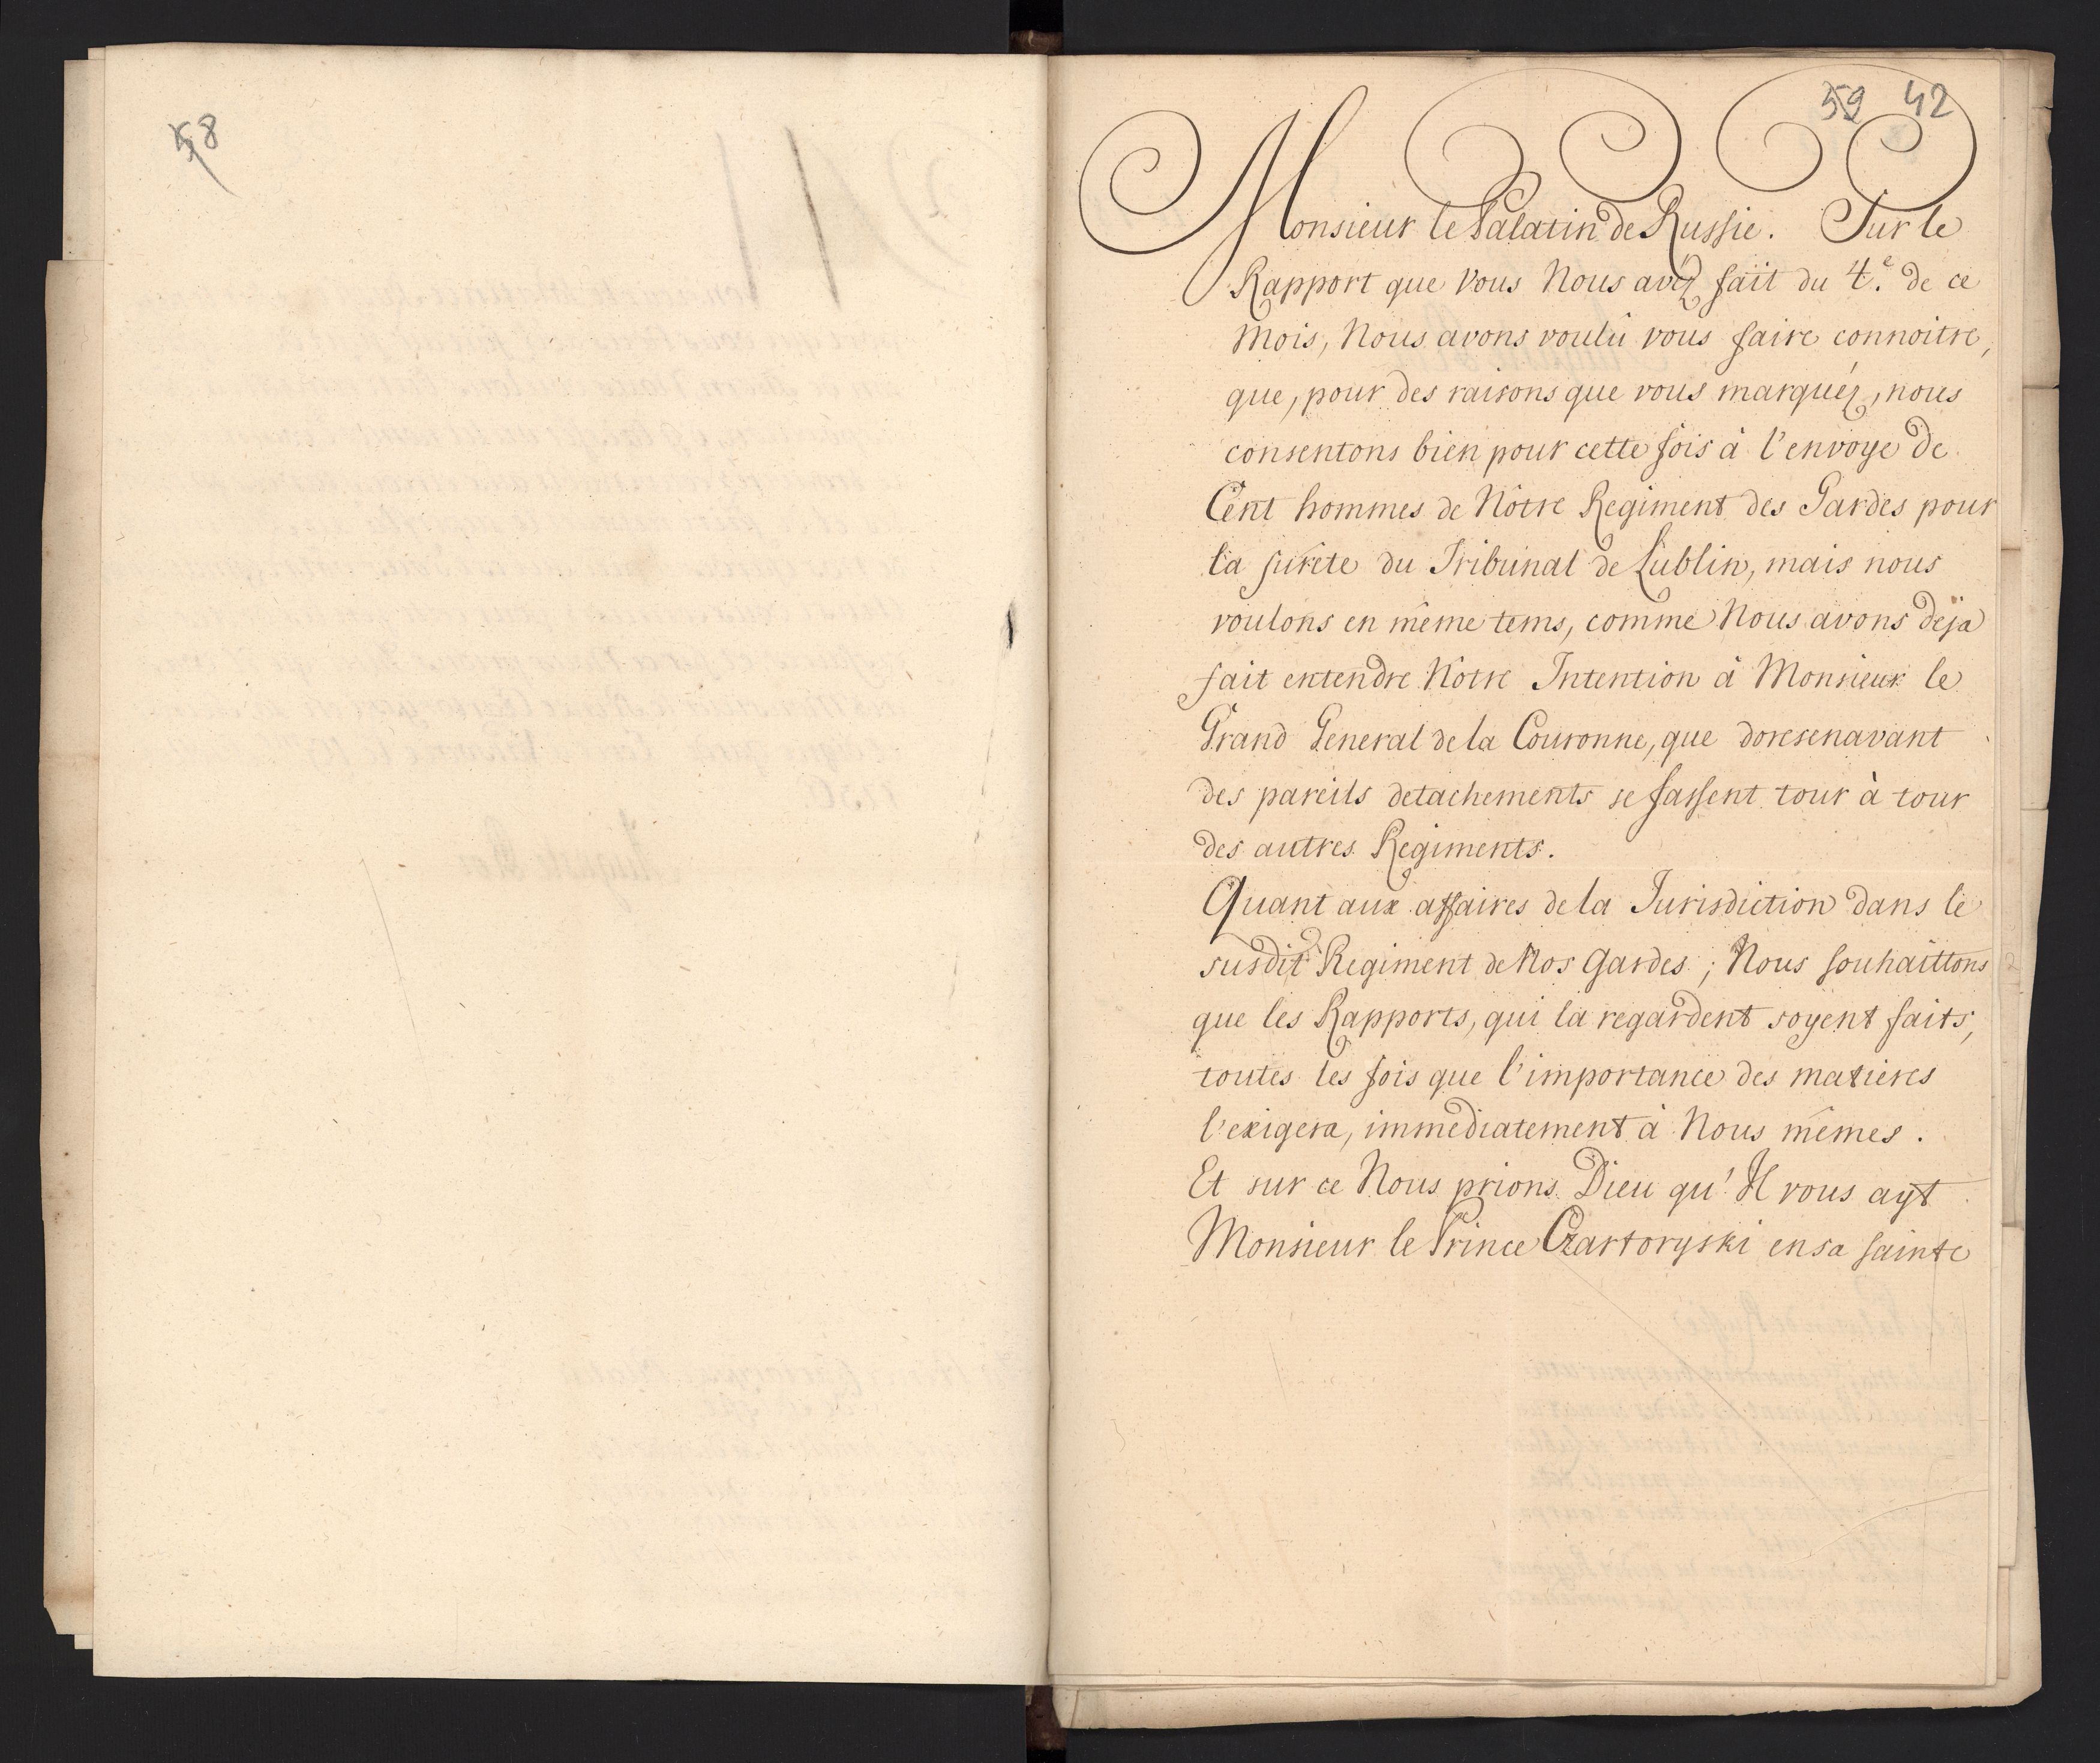 58
59 42
Monsieur le Palatin de Russie. Sur le
Rapport que Vous Nous avéz fait du 4.e de ce
Mois, Nous avons voulû vous faire connoitre,
que, pour des raisons que vous marquéz, nous
consentons bien pour cette fois à l'envoye de
Cent hommes de Nôtre Regiment des Gardes pour
la sûrete du Tribunal de Lublin, mais nous
voulons en même tems, comme Nous avons déja
fait entendre Notre Intention à Monsieur le
Grand General de la Couronne, que doresenavant
des pareils detachements se fassent tour à tour
des autres Regiments.
Quant aux affaires de la Jurisdiction dans le
susdit Regiment de Nos Gardes; Nous souhaittons
que les Rapports, qui la regardent soyent faits,
toutes les fois que l'importance des matieres
l'exigera, immediatement à Nous mêmes.
Et sur ce Nous prions Dieu qu'Il vous ayt
Monsieur le Prince Czartoryski en sa sainte